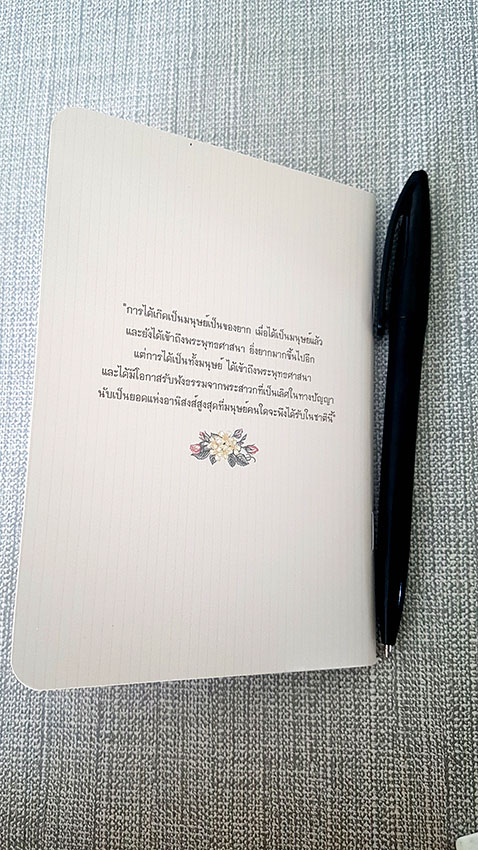 "การได้เกิดเป็นมนุษย์เป็นของยาก เมื่อได้เป็นมนุษย์แล้ว
และยังได้เข้าถึงพระพุทธศาสนา ยิ่งยากมากขึ้นไปอีก
แต่การได้เป็นทั้งมนุษย์ ได้เข้าถึงพระพุทธศาสนา
และได้มีโอกาสรับฟังธรรมจากพระสาวกที่เป็นเลิศในทางปัญญา
นับเป็นยอดแห่งอานิสงส์สูงสุดที่มนุษย์คนใดจะพึงได้รับในชาตินี้"